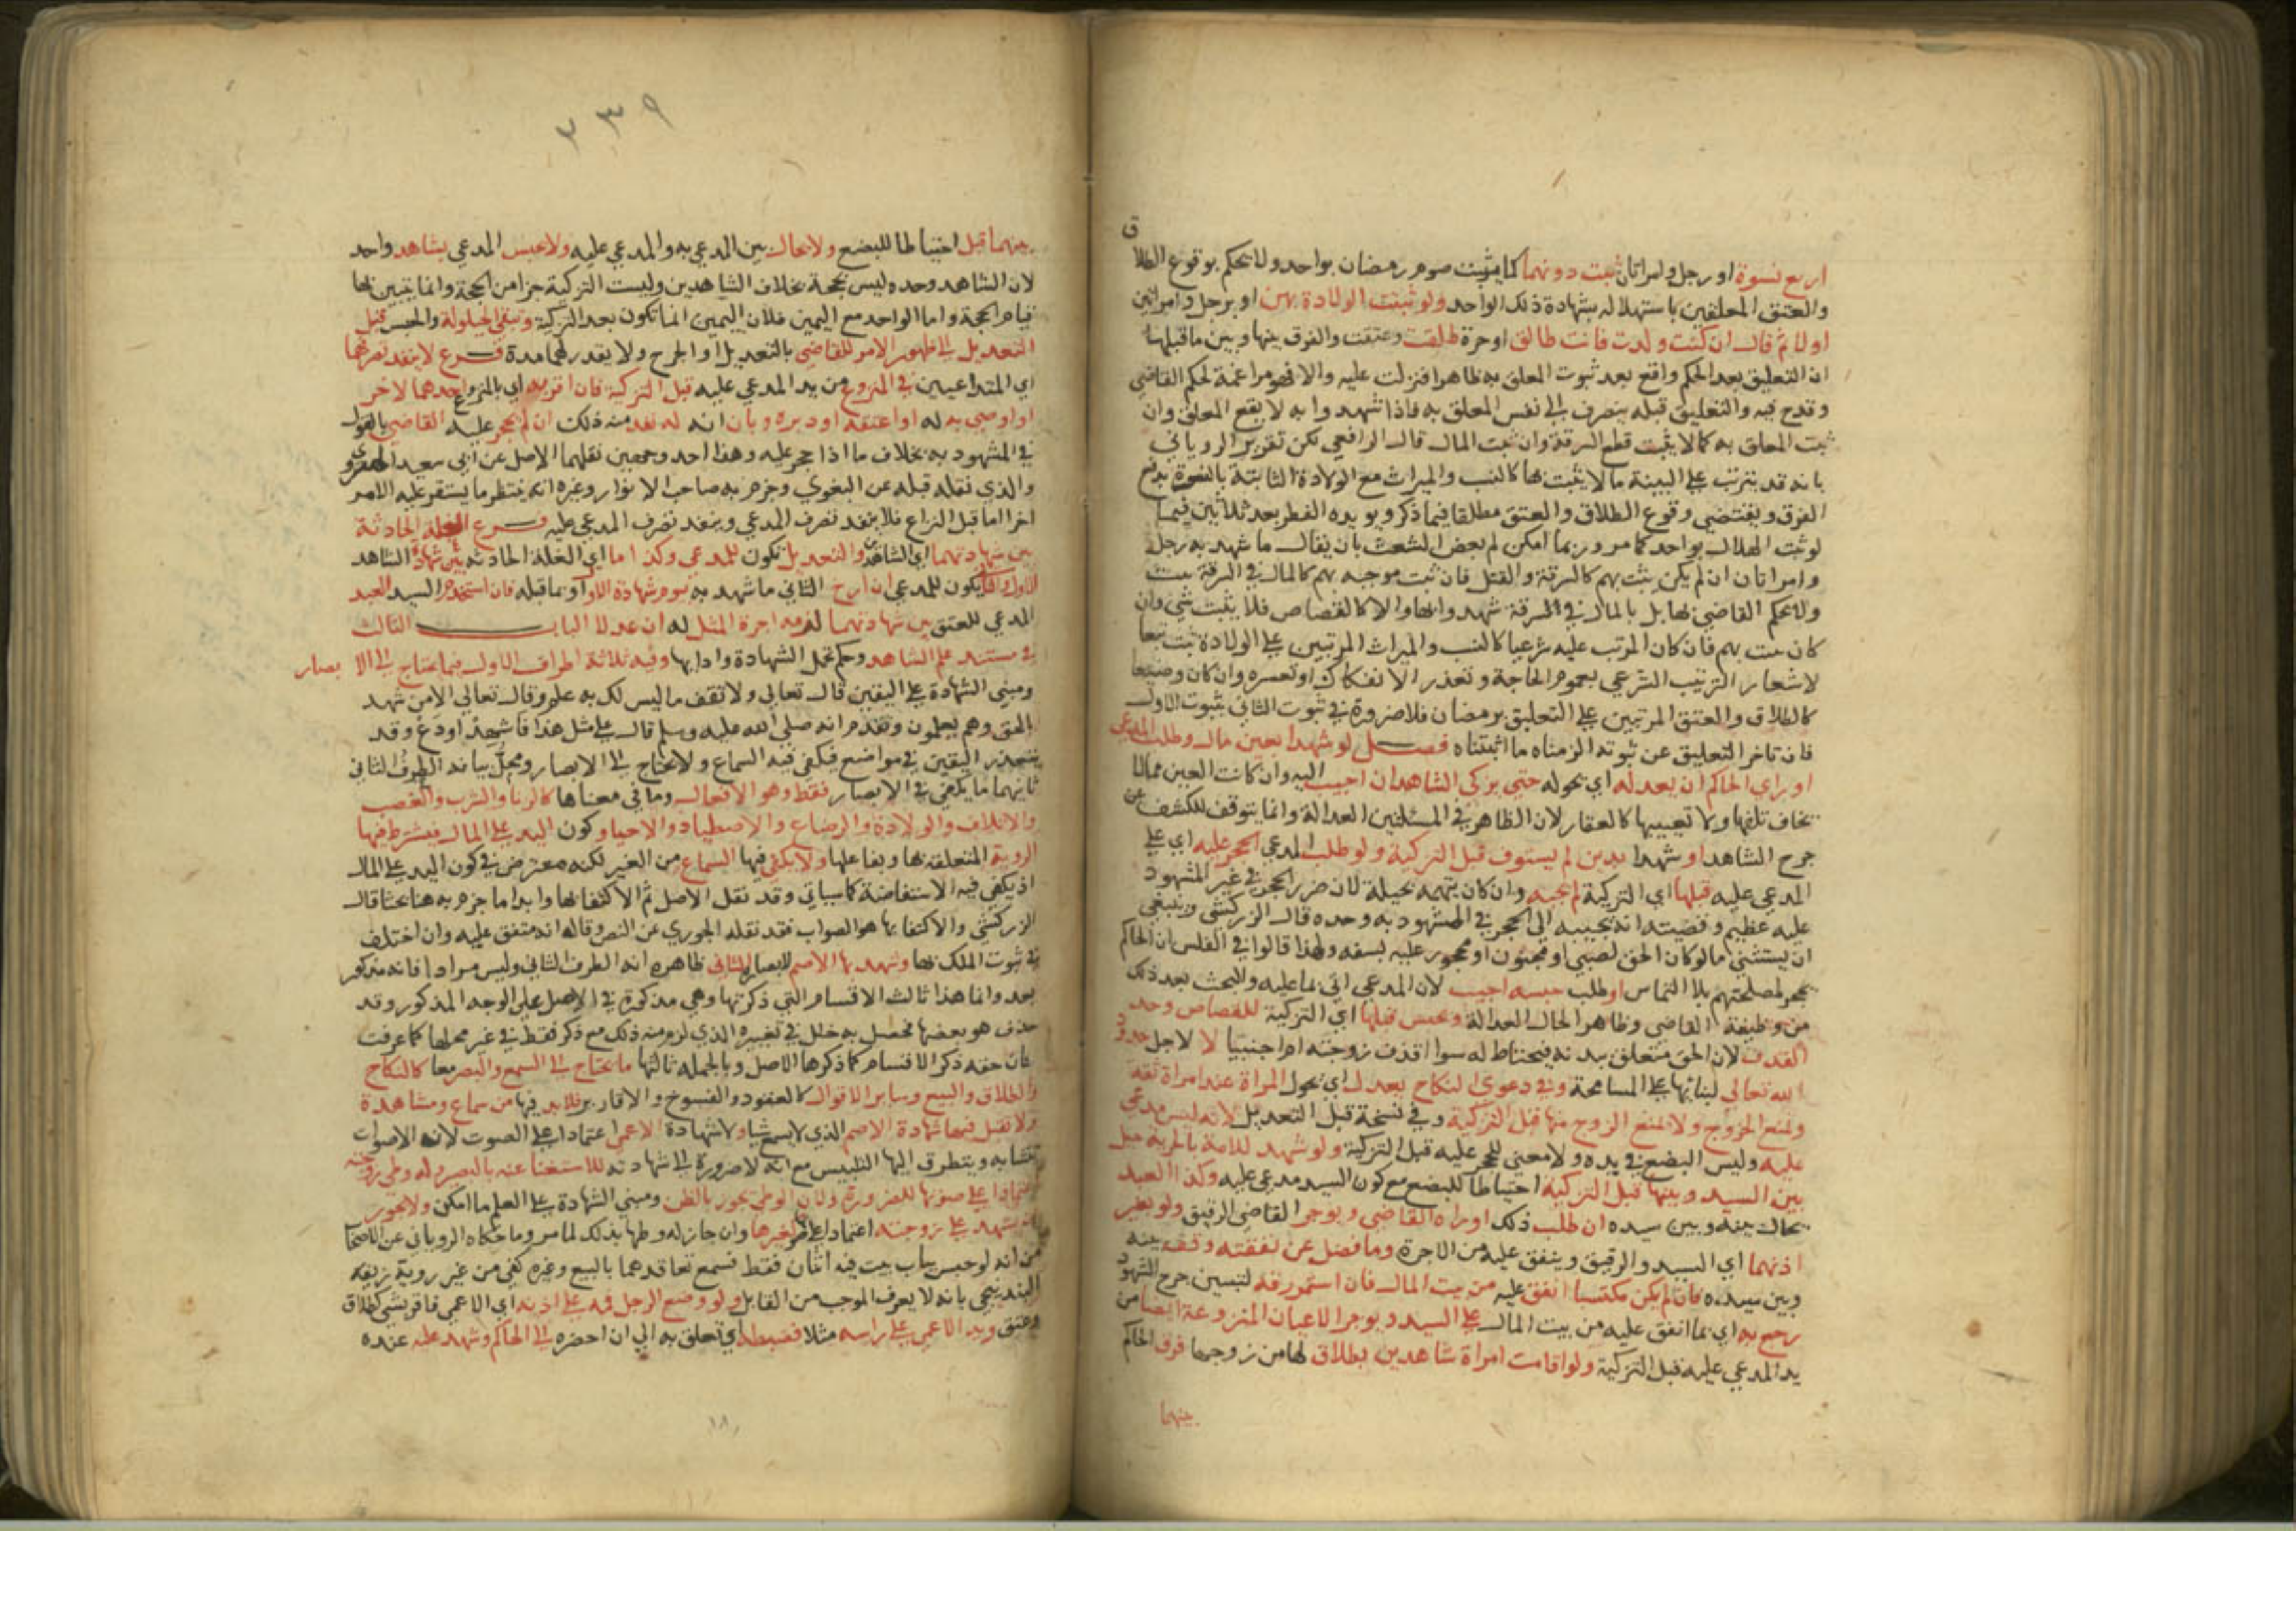 اربع نسوة او رجل وامراتان ثبت دونهما كما يثبت صوم رمضان بواحد ولا يحكم بوقوع الطلا
ق
والعتق المعلقين باستهلاله بشهادة ذلك الواحد ولو ثبتت الولادة بهن او برجل وامراتين
اولا ثم قال ان كنت ولدت فانت طالق او حرة طلقت وعتقت والفرق بينها وبين ما قبلها
ان التعليق بعد الحكم واقع بعد ثبوت المعلق به ظاهرا فنزلت عليه والا فهو مراغمة لحكم القاضي
وقدح فيه والتعليق قبله ينصرف الي نفس المعلق به فاذا شهدوا به لا يقع المعلق وان
ثبت المعلق به كما لا يثبت قطع السرقة وان ثبت المال قال الرافعي لكن تقرير الروياني
بانه قد يترتب علي البينة ما لا يثبت بها كالنسب والميراث مع الولادة الثابتة بالنسوة يدفع
الفرق ويقتضي وقوع الطلاق والعتق مطلقا فيما ذكر ويويده الفطر بعد ثلاثين فيما
لو ثبت الهلال بواحد كما مر وربما امكن لم بعض الشعث بان يقال ما شهد به رجل
وامراتان ان لم يكن يثبت بهم كالسرقة والقتل فان ثبت موجبه بهم كالمال في السرقة ثبت
ولا يحكم القاضي بها بل بالمال في السرقة شهدوا بها والا كالقصاص فلا يثبت شي وان
كان يثبت بهم فان كان المرتب عليه شرعيا كالنسب والميراث المرتبين علي الولادة ثبت تبعا
لاشعار الترتيب الشرعي بعموم الحاجة وتعذر الانفكاك او تعسره وان كان وضعيا
كالطلاق والعتق المرتبين علي التعليق برمضان فلا ضرورة في ثبوت الثاني بثبوت الاول
فان تاخر التعليق عن ثبوته الزمناه ما اثبتناه فصل لو شهدا بعين مال وطلب المدعي
او راي الحاكم ان يعدله اي يحوله حتي يزكي الشاهدان اجيب اليه وان كانت العين مما لا
يخاف تلفها ولا تعييبها كالعقار لان الظاهر في المسئلتين العدالة وانما يتوقف للكشف عن
جرح الشاهد او شهدا بدين لم يستوف قبل التزكية ولو طلب المدعي الحجر عليه اي علي
المدعي عليه قبلها اي التزكية لم يجبه وان كان يتهمه بحيلة لان ضرر الحجر في غير المشهود
عليه عظيم وقضيته انه يجيبه الي الحجر في المشهود به وحده قال الزركشي وينبغي
ان يستثني ما لو كان الحق لصبي او مجنون او محجور عليه بسفه ولهذا قالوا في الفلس ان الحاكم
يحجر لمصلحتهم بلا التماس او طلب حبسه اجيب لان المدعي اتي بما عليه والبحث بعد ذلك
من وظيفة القاضي وظاهر الحال العدالة ويحبس قبلها اي التزكية للقصاص وحد
القذف لان الحق متعلق ببدنه فيحتاط له سوا اقذف زوجته ام اجنبيا لا لاجل حدود
الله تعالي لبنائها علي المسامحة وفي دعوي النكاح يعدل اي تحول المراة عند امراة ثقة
وتمنع الخروج ولا يمنع الزوج منها قبل التزكية وفي نسخة قبل التعديل لانه ليس مدعي
عليه وليس البضع في يده ولا معني للحجر عليه قبل التزكية ولو شهد للامة بالحرية حيل
بين السيد وبينها قبل التزكية احتياطا للبضع مع كون السيد مدعي عليه وكذا العبد
يحال بينه وبين سيده ان طلب ذلك او راه القاضي ويوجر القاضي الرقيق ولو بغير
اذنهما اي السيد والرقيق وينفق عليه من الاجرة وما فضل عن نفقته وقف بينه
وبين سيده فان لم يكن مكتسبا انفق عليه من بيت المال فان استمر رقه لتبين جرح الشهود
رجع به اي بما انفق عليه من بيت المال علي السيد ويوجر الاعيان المنزوعة ايضا من
يد المدعي عليه قبل التزكية ولو اقامت امراة شاهدين بطلاق لها من زوجها فرق الحاكم
بينهما
٢٣٩
بينهما قبل احتياطا للبضع ولا يحال بين المدعي به والمدعي عليه ولا يحبس المدعي بشاهد واحد
لان الشاهد وحده ليس بحجة بخلاف الشاهدين وليست التزكية جزا من الحجة وانما يتبين بها
قيام الحجة واما الواحد مع اليمين فلان اليمين انما تكون بعد التزكية وتبقي الحيلولة والحبس قبل
التعديل الي ظهور الامر للقاضي بالتعديل او الجرح ولا يقدر لهما مدة فرع لا ينفذ تصرفهما
اي المتداعيين في المنزوع من يد المدعي عليه قبل التزكية فان اقر به اي بالمنزوع احدهما لاخر
او اوصي به له او اعتقه او دبره وبان انه له نفذ منه ذلك ان لم يحجر عليه القاضي بالقول
في المشهود به بخلاف ما اذا حجر عليه وهذا احد وجهين نقلهما الاصل عن ابي سعيد الهروي
والذي نقله قبله عن البغوي وجزم به صاحب الانوار وغيره انه ينتظر ما يستقر عليه الامر
اخرا اما قبل النزاع فلا ينفذ تصرف المدعي وينفذ تصرف المدعي عليه فرع الغلة الحادثة
بين شهادتهما اي الشاهدين والتعديل تكون للمدعي وكذا اما اي الغلة الحادثة بين شهادة الشاهد
الاول والثاني يكون للمدعي ان ارخ الثاني ما شهد به بيوم شهادة الاول او بما قبله فان استخدم السيد العبد
المدعي للعتق بين شهادتهما لزمه اجرة المثل له ان عدلا الباب الثالث
في مستند علم الشاهد وحكم تحمل الشهادة وادايها وفيه ثلاثة اطراف الاول فيما يحتاج الي الابصار
ومبني الشهادة علي اليقين قال تعالي ولا تقف ما ليس لك به علم وقال تعالي الا من شهد
بالحق وهم يعلمون وتقدم انه صلي الله عليه وسلم قال علي مثل هذا فاشهد او دع وقد
يتعذر اليقين في مواضع فيكفي فيه السماع ولا يحتاج الي الابصار ومحل بيانه الطرف الثاني
ثانيهما ما يكفي في الابصار فقط وهو الافعال وما في معناها كالزنا والشرب والغصب
والاتلاف والولادة والرضاع والاصطياد والاحيا وكون اليد علي المال فيشترط فيها
الروية المتعلقة بها وبفاعلها ولا يكفي فيها السماع من الغير لكنه معترض في كون اليد علي المال
اذ يكفي فيه الاستفاضة كما سياتي وقد نقل الاصل ثم الاكتفا بها وابدا ما جزم به هنا بحثا قال
الزركشي والاكتفا بها هو الصواب فقد نقله الجوري عن النص وقال انه متفق عليه وان اختلف
في ثبوت الملك بها وشهد بها الاصم للابصار الثاني ظاهره انه الطرف الثاني وليس مرادا فانه مذكور
بعد وانما هذا ثالث الاقسام التي ذكرتها وهي مذكورة في الاصل علي الوجه المذكور وقد
حذف هو بعضها فحصل به خلل في تعبيره الذي لزم منه ذلك مع ذكر فقط في غير محلها كما عرفت
فكان حقه ذكر الاقسام كما ذكرها الاصل وبالجملة ثالثها ما يحتاج الي السمع والبصر معا كالنكاح
والطلاق والبيع وساير الاقوال كالعقود والفسوخ والاقارير فلا بد فيها من سماع ومشاهدة
ولا تقبل فيها شهادة الاصم الذي لا يسمع شيا ولا شهادة الاعمي اعتمادا علي الصوت لان الاصوات
تتشابه ويتطرق اليها التلبيس مع انه لا ضرورة الي شهادته للاستغنا عنه بالبصير وله وطي زوجته
اعتمادا علي صوتها للضرورة ولان الوطي يجوز بالظن ومبني الشهادة علي العلم ما امكن ولا يجوز
ان يشهد علي زوجته اعتمادا علي صوتها كغيرها وان جاز له وطيها بذلك لما مر وما حكاه الروياني عن الاصحاب
من انه لو جلس بباب بيت فيه اثنان فقط فسمع تعاقدهما بالبيع وغيره كفي من غير روية زيفه
البندنيجي بانه لا يعرف الموجب من القابل ولو وضع الرجل فمه علي اذنه اي الاعمي فاقر بشي كطلاق
وعتق ويد الاعمي علي راسه مثلا فضبطه اي تعلق به الي ان احضره الي الحاكم وشهد عليه عنده